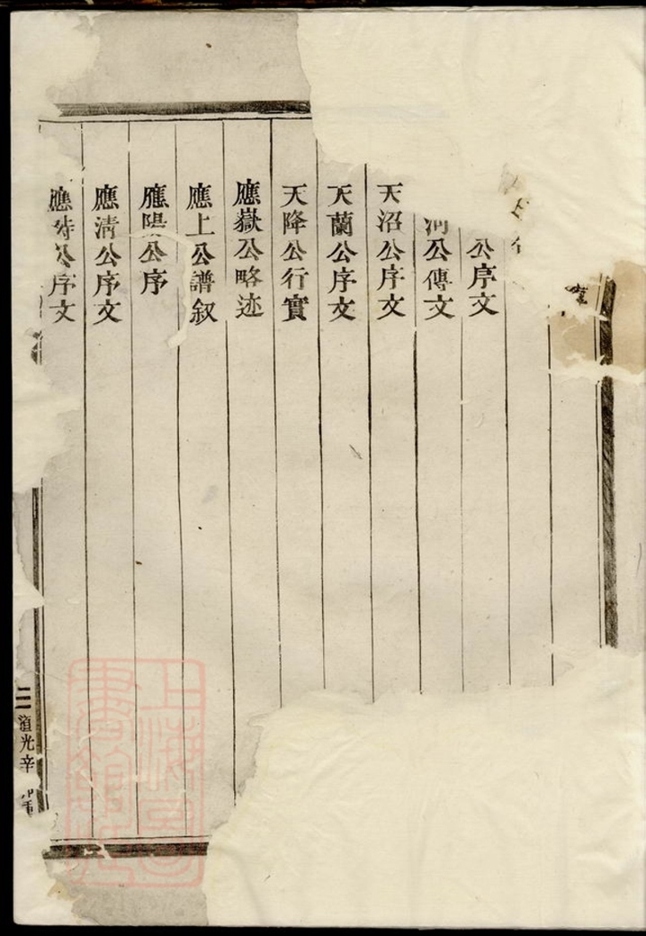 公序文
公傳文
天沼公序文
天蘭公序文
天降公行實
應嶽公略迹
應上公譜叙
應陽公序
應清公序文
應 公序文
二 道光辛
上海圖書館藏